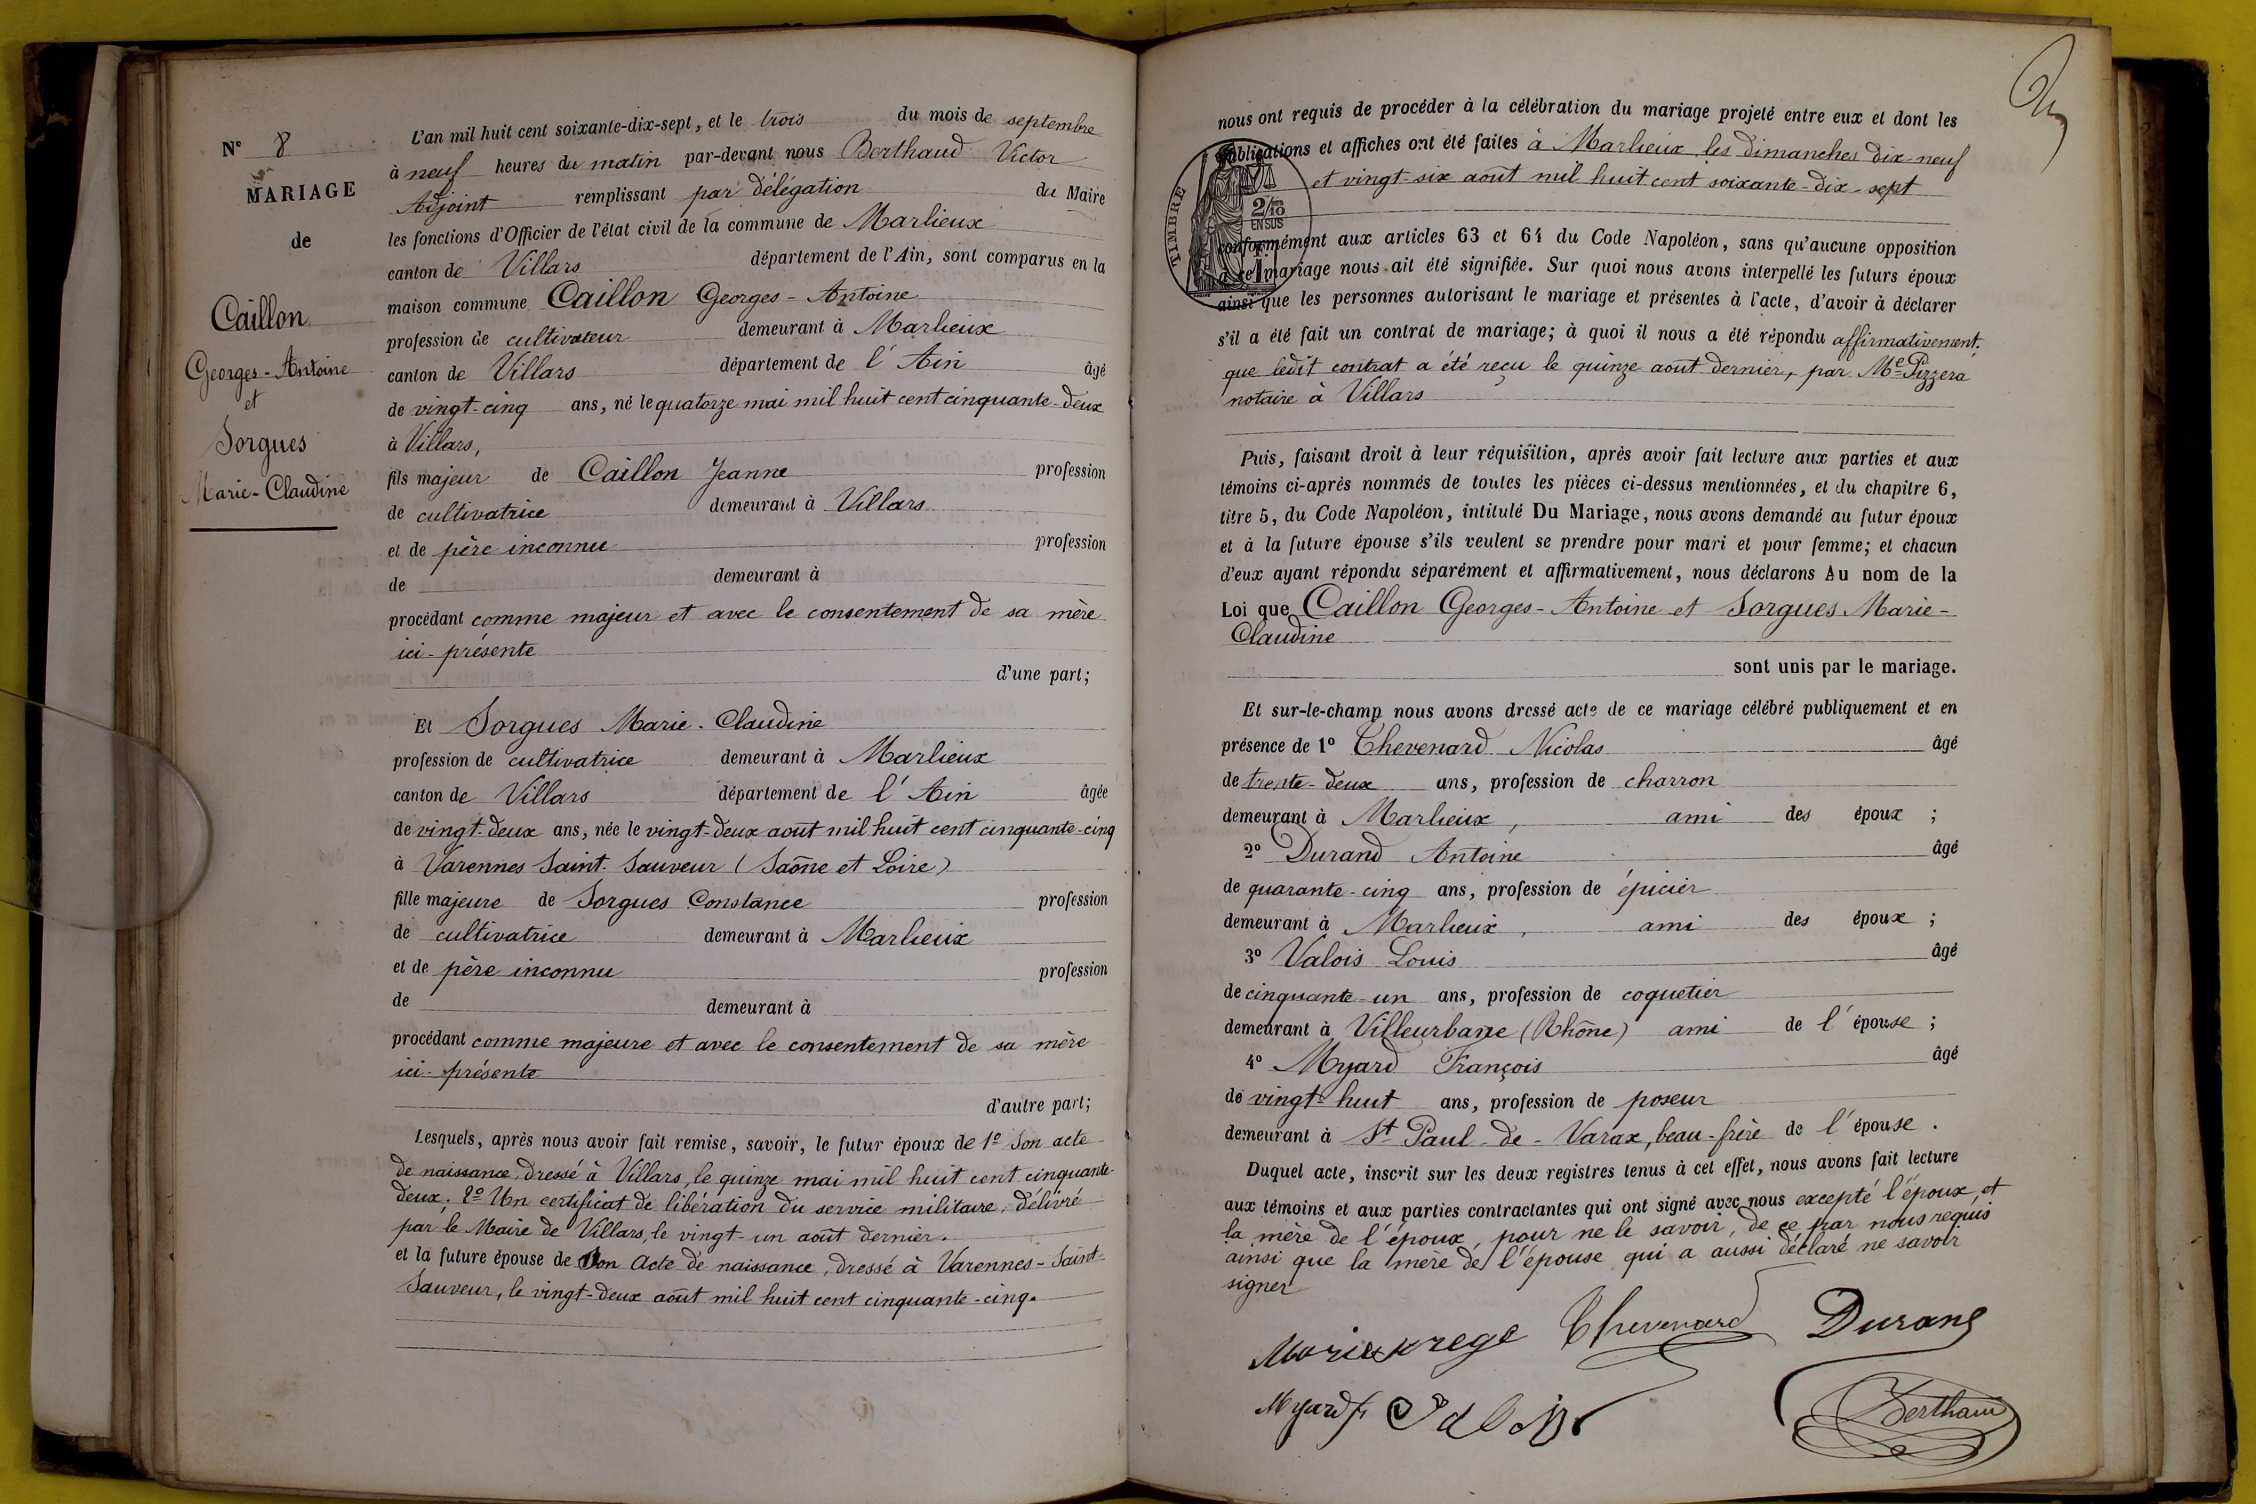 N° 8
MARIAGE
de
Caillon
Georges-Antoine
et
Sorgues
Marie-Claudine
L'an mil huit cent soixante-dix-sept, et le trois du mois de septembre
à neuf heures du matin par-devant nous Berthaud Victor
Adjoint remplissant par délégation du Maire
les fonctions d'Officier de l'état civil de la commune de Marlieux
canton de Villars département de l'Ain, sont comparus en la
maison commune Caillon Georges-Antoine
profession de cultivateur demeurant à Marlieux
canton de Villars département de l'Ain âgé
de vingt-cinq ans, né le quatorze mai mil huit cent cinquante-deux
à Villars,
fils majeur de Caillon Jeanne profession
de cultivatrice demeurant à Villars
et de père inconnu profession
de demeurant à
procédant comme majeur et avec le consentement de sa mère
ici-présente
d'une part;
Et Sorgues Marie-Claudine
profession de cultivatrice demeurant à Marlieux
canton de Villars département de l'Ain âgée
de vingt-deux ans, née le vingt-deux août mil huit cent cinquante-cinq
à Varennes Saint-Sauveur (Saône et Loire)
fille majeure de Sorgues Constance profession
de cultivatrice demeurant à Marlieux
et de père inconnu profession
de demeurant à
procédant comme majeure et avec le consentement de sa mère
ici-présente
d'autre part;
Lesquels, après nous avoir fait remise, savoir, le futur époux de 1° Son acte
de naissance, dressé à Villars, le quinze mai mil huit cent cinquante-
deux; 2° Un certificat de libération du service militaire, délivré
par le Maire de Villars, le vingt-un août dernier.
et la future épouse de Son Acte de naissance, dressé à Varennes-Saint-
Sauveur, le vingt-deux août mil huit cent cinquante-cinq.
nous ont requis de procéder à la célébration du mariage projeté entre eux et dont les
publications et affiches ont été faites à Marlieux les dimanches dix-neuf
et vingt-six août mil huit cent soixante-dix-sept
TIMBRE
2/10
EN SUS
conformément aux articles 63 et 64 du Code Napoléon, sans qu'aucune opposition
à ce mariage nous ait été signifiée. Sur quoi nous avons interpellé les futurs époux
ainsi que les personnes autorisant le mariage et présentes à l'acte, d'avoir à déclarer
s'il a été fait un contrat de mariage; à quoi il nous a été répondu affirmativement,
que ledit contrat a été reçu le quinze août dernier, par Me Pizzera
notaire à Villars
Puis, faisant droit à leur réquisition, après avoir fait lecture aux parties et aux
témoins ci-après nommés de toutes les pièces ci-dessus mentionnées, et du chapitre 6,
titre 5, du Code Napoléon, intitulé Du Mariage, nous avons demandé au futur époux
et à la future épouse s'ils veulent se prendre pour mari et pour femme; et chacun
d'eux ayant répondu séparément et affirmativement, nous déclarons Au nom de la
Loi que Caillon Georges-Antoine et Sorgues Marie-
Claudine
sont unis par le mariage.
Et sur-le-champ nous avons dressé acte de ce mariage célébré publiquement et en
présence de 1° Chevenard Nicolas âgé
de trente-deux ans, profession de charron
demeurant à Marlieux, ami des époux ;
2° Durand Antoine âgé
de quarante-cinq ans, profession de épicier
demeurant à Marlieux, ami des époux ;
3° Valois Louis âgé
de cinquante-un ans, profession de coquetier
demeurant à Villeurbane (Rhône) ami de l'épouse ;
4° Myard François âgé
de vingt-huit ans, profession de poseur
demeurant à St Paul-de-Varax, beau-frère de l'épouse.
Duquel acte, inscrit sur les deux registres tenus à cet effet, nous avons fait lecture
aux témoins et aux parties contractantes qui ont signé avec nous excepté l'époux, et
la mère de l'époux, pour ne le savoir, de ce par nous requis
ainsi que la mère de l'épouse qui a aussi déclaré ne savoir
signer
Chevenard Durand
Myard f
Berthaud